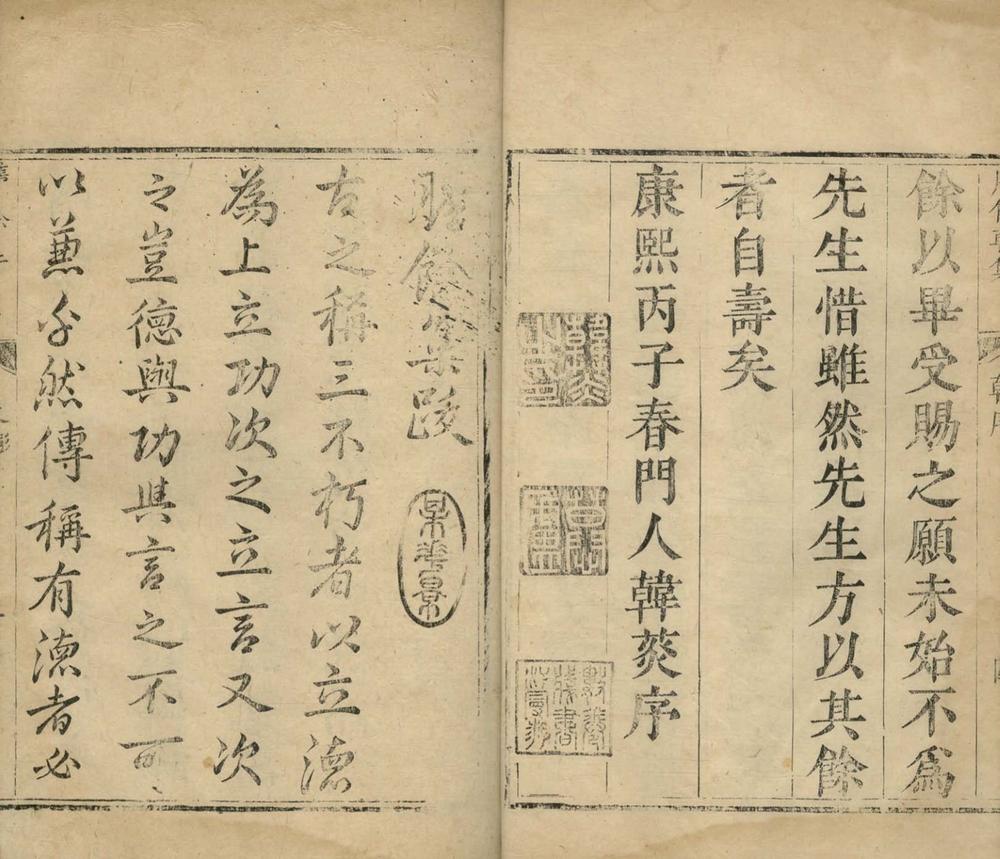 餘以畢受賜之願未始不爲
先生惜雖然先生方以其餘
者自壽矣
康熙丙子春門人韓菼序
韓菼
之印
賸餘集跋
古之稱三不朽者以立德
為上立功次之立言又次
之豈德與功與言之不可
以兼乎然傳稱有德者必